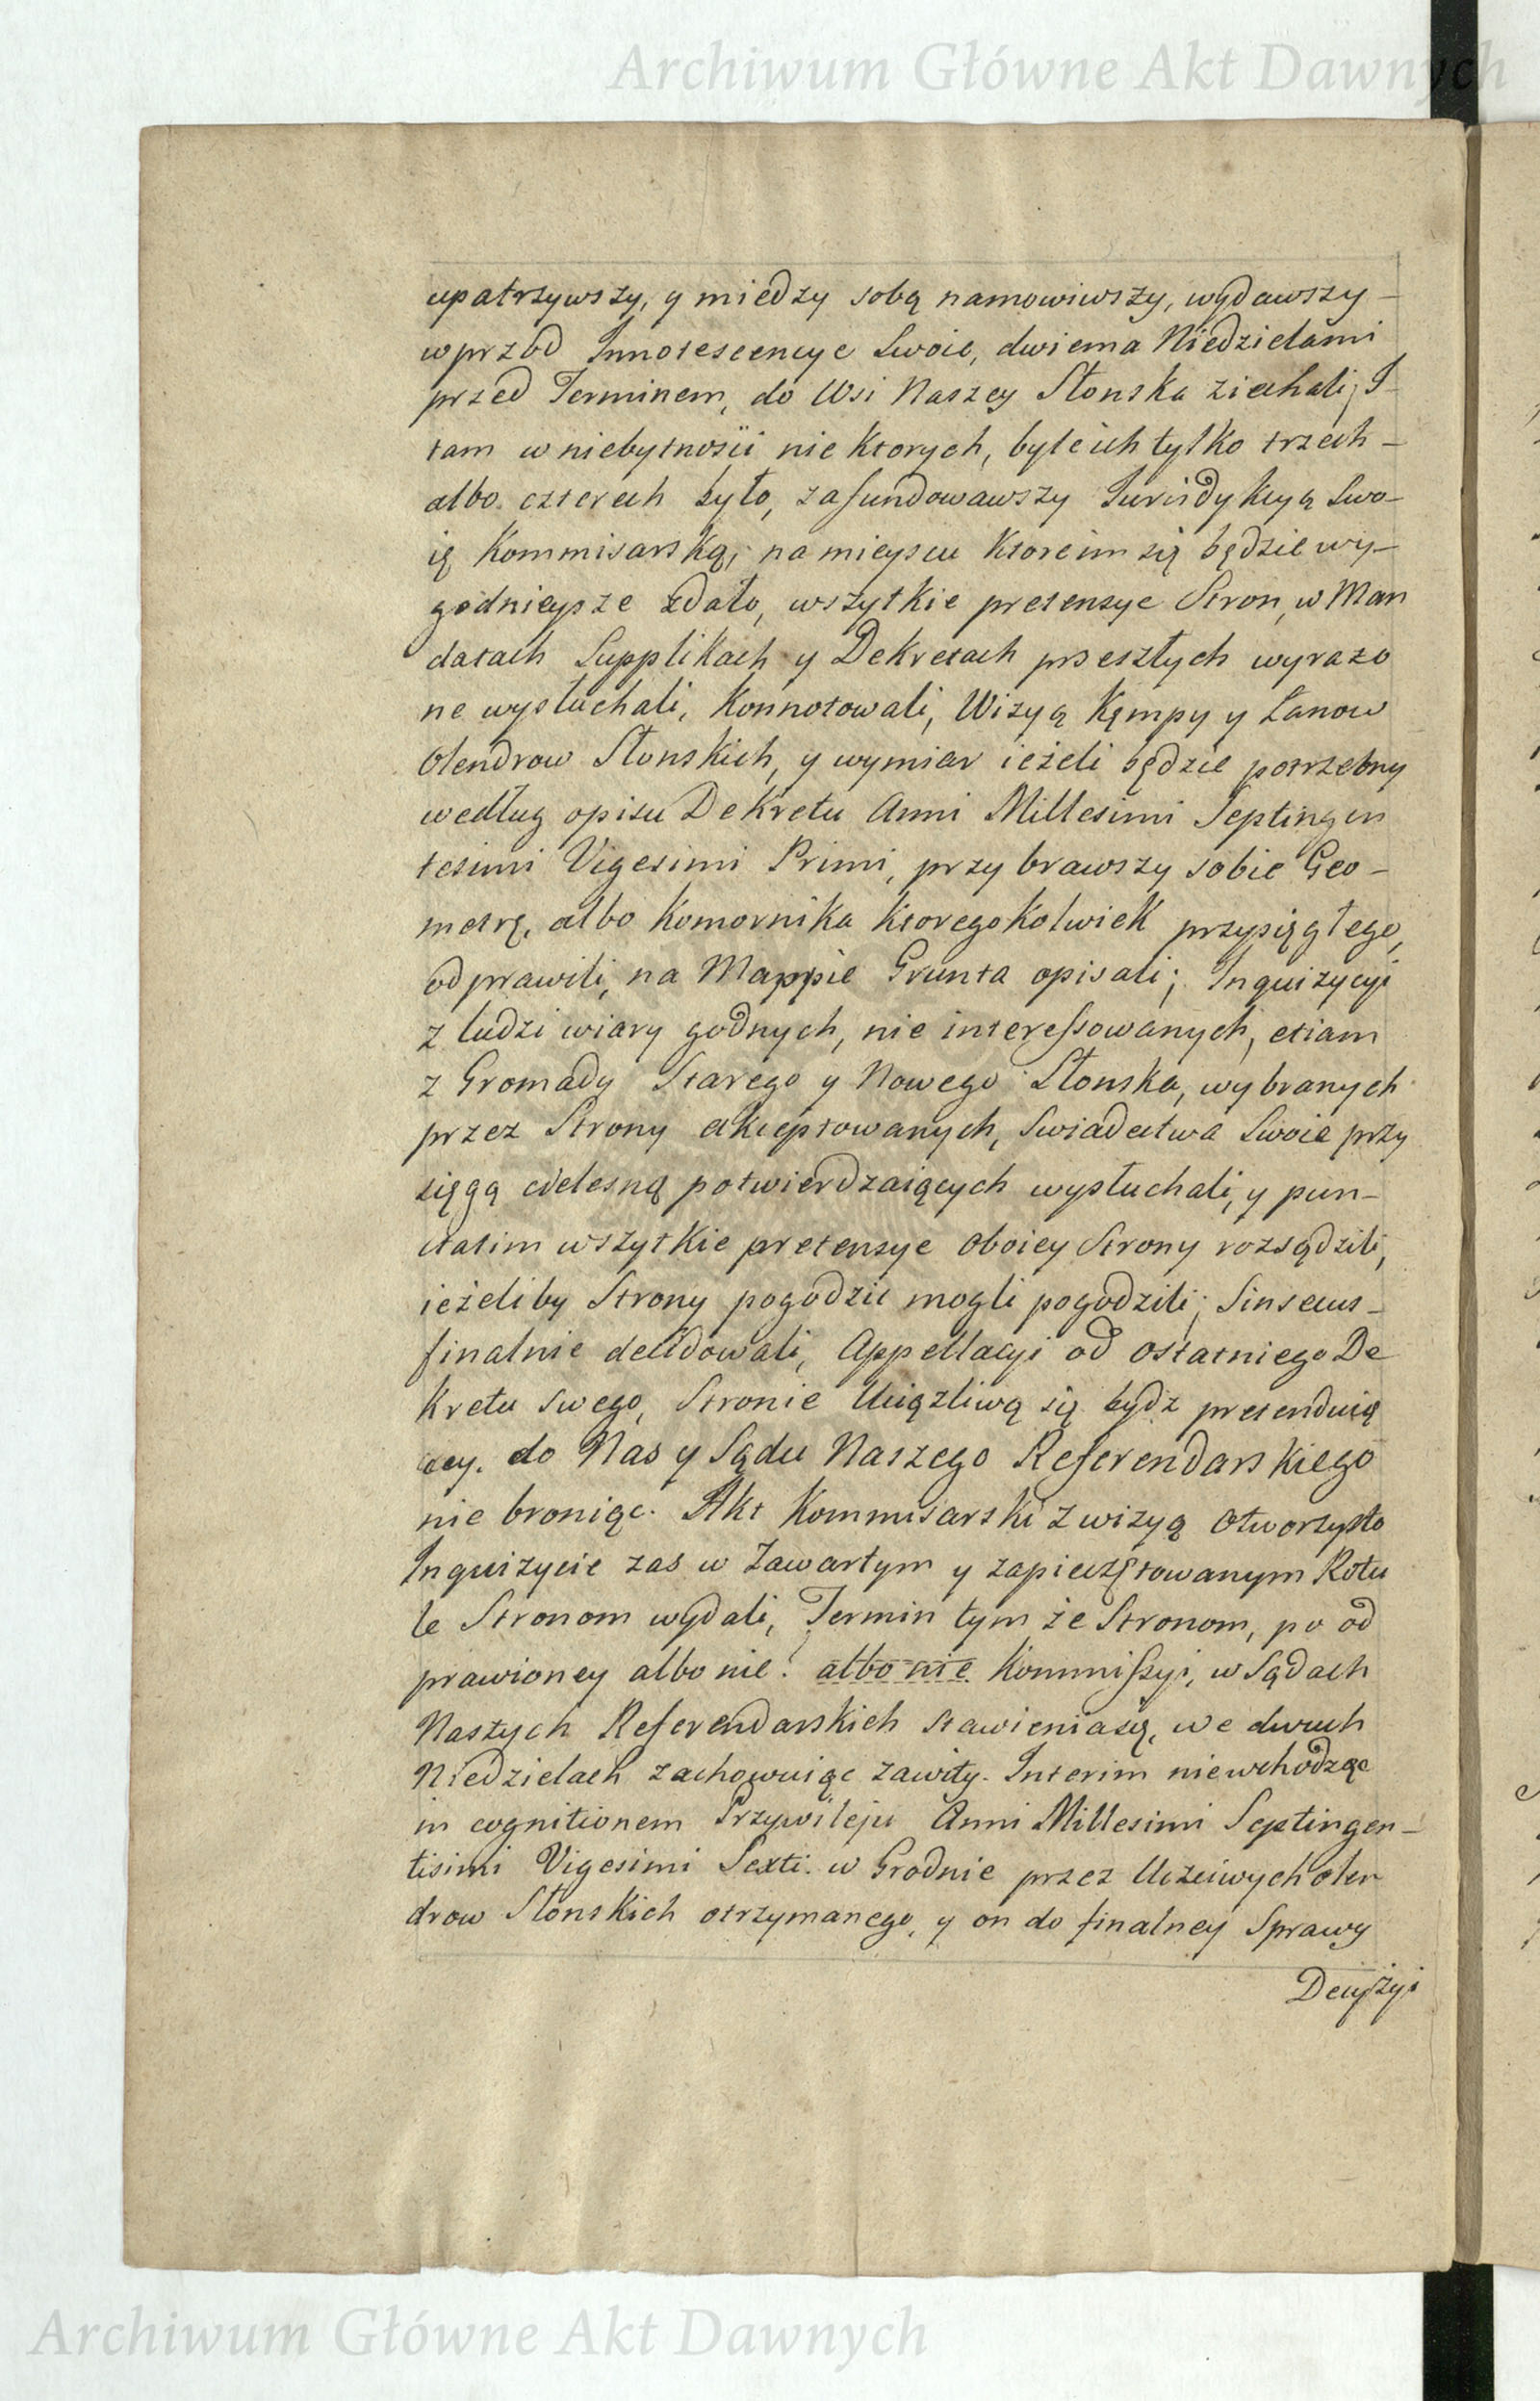 Archiwum Główne Akt Dawnych
upatrzywszy, y miedzy sobą namowiwszy, wydawszy –
wprzod Innotescencye Swoie, dwiema Niedzielami
przed Terminem, do Wsi Naszey Słonska ziechali; I
tam w niebytnosci nie ktorych, byle ich tylko trzech –
albo czterech było, zafundowawszy Jurisdykcyą Swo–
ię Kommisarską, na mieyscu ktore im się będzie wy–
godnieysze zdało, wszytkie pretensye Stron, w Man
datach Supplikach y Dekretach przeszłych wyrazo
ne wysłuchali, konnotowali, Wizyą Kęmpy y Łanow
Olendrow Słonskich, y wymiar ieżeli będzie potrzebny
według opisu Dekretu Anni Millesimi Septingen
tesimi Vigesimi Primi, przybrawszy sobie Geo –
metrę, albo Komornika ktoregokolwiek przysięgłego,
odprawili, na Mappie Grunta opisali; Inquizycyi
z ludzi wiary godnych, nie interessowanych, etiam
z Gromady Starego y Nowego Słonska, wybranych
przez Strony akceptowanych, Swiadectwa Swoie przy
sięgą cielesną potwierdzaiących wysłuchali, y pun–
ctatim wszytkie pretensye oboiey Strony rozsądzili,
ieżeliby Strony pogodzic mogli pogodzili; Sinsecus –
finalnie decidowali, Appellacyi od ostatniego De
kretu swego, Stronie Uciązliwą się bydz pretenduią
cey. do Nas y Sądu Naszego Referendarskiego
nie broniąc. Akt Kommisarski z wizyą otworzysto
Inquizycie zas w Zawartym y zapieczętowanym Rotu
le Stronom wydali, Termin tym że Stronom, po od
prawioney albo nie. albo nie Kommissyi, w Sądach
Naszych Referendarskich stawienia się, we dwuch
Niedzielach zachowuiąc zawity. Interim niewchodząc
in cognitionem Przywileju Anni Millesimi Septingen–
tisimi Vigesimi Sexti. w Grodnie przez Uczciwych olen
drow Słonskich otrzymanego, y on do finalney Sprawy
Decyzyi
Archiwum Główne Akt Dawnych